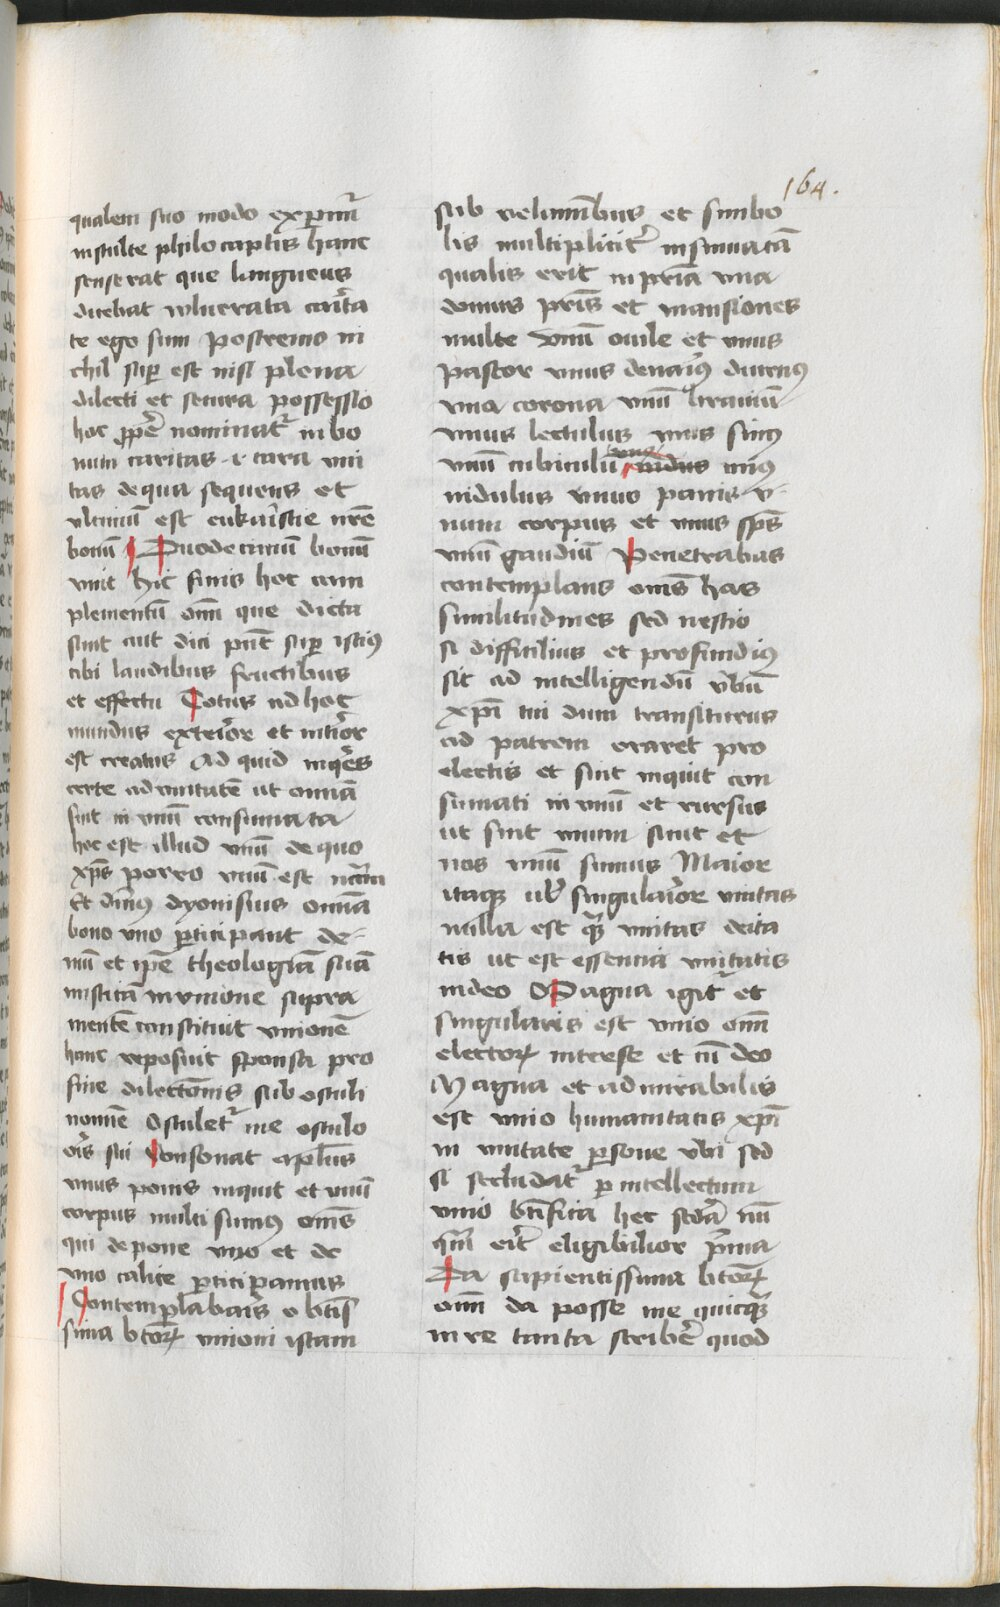 164.
qualem suo modo experiūt᷑
in stulte philocaptis hanc
senserat que langueus
dicebat vulnerata carīta
te ego sum Postremo ni
chil sup̄ est nisi plena
dilecti et secura possessio
hoc ꝓpē nominat᷑ in bo
num caritas .i. cara uni
tas de qua sequens et
vltimū est eukaīstie nrē
bonū Duodecimū bonū
vnit hic finis hoc com
plementū om̄ que dicta
sunt aut dici pn̄t sup̄ istiꝰ
cibi laudibus fructibus
et effectu Totus ad hoc
mundus exteīor et intīor
est creatus Ad quid inq̄es
certe ad vnitatē ut omīa
sint in vnū consumata
hoc est illud vnū de quo
xp̄s porro vnū est nc̄ccīm
Et dīnꝰ dyonisius omīa
bono vno ꝑticipant de-
mū et ip̄e theologiā suā
misticā in vnione supra
mentē constituit vnionē
hanc reposuit sponsa pro
fine dilectōnis sub osculi
nomīe Osculet᷑ me osculo
or̄is sui Consonat apl̄us
vnus panis inquit et vnū
corpus multi sumꝰ om̄s
qui de pane vno et de
vno calice ꝑticipamus
Contemplabar̄is o btīs
sima btōrꝝ vnioni istam
sub velaminibus et simbo
lis multiplicit᷑ insinuatā
qualis erit in pr̄ia vna
domus pr̄is et mansiones
multe vnū ouile et vnus
pastor vnus denar̄iꝰ diurnꝰ
vna corona vnū brauiū
vnus lectulus vnus sinꝰ
vnū cubiculū vnꝰ nidus vnꝰ
nidulus vnus panis v-
num corpus et vnus sp̄s
vnū gaudiū Penetrabas
contemplans om̄s has
similitudines sed nescio
si difficilius et profundiꝰ
sit ad intelligendū v̄bū
xp̄i tui dum transiturus
ad patrem oraret pro
electis et sint inquit con
sumati in vnū et rursus
ut sint vnum sicut et
nos vnū sumus Maior
itaqꝫ ul̄ singular̄ior vnitas
nulla est qꝫ̄ vnitas deita
tis ut est essencia vnitatis
in deo Magna igit᷑ et
singularis est vnio om̄
electorꝝ inter se et cū deo
Magna et admirabilis
est vnio humanitatis xp̄i
in vnitate ꝑsone v̄bi sed
si secludat᷑ ꝑ intellectum
vnio bt̄ifica hec scd̄a nū
qm̄ er̄it eligibilior p̄ma
Da sapientissima btōrꝝ
om̄ da posse me quicqꝫ̄
in re tanta scribē᷑ quod